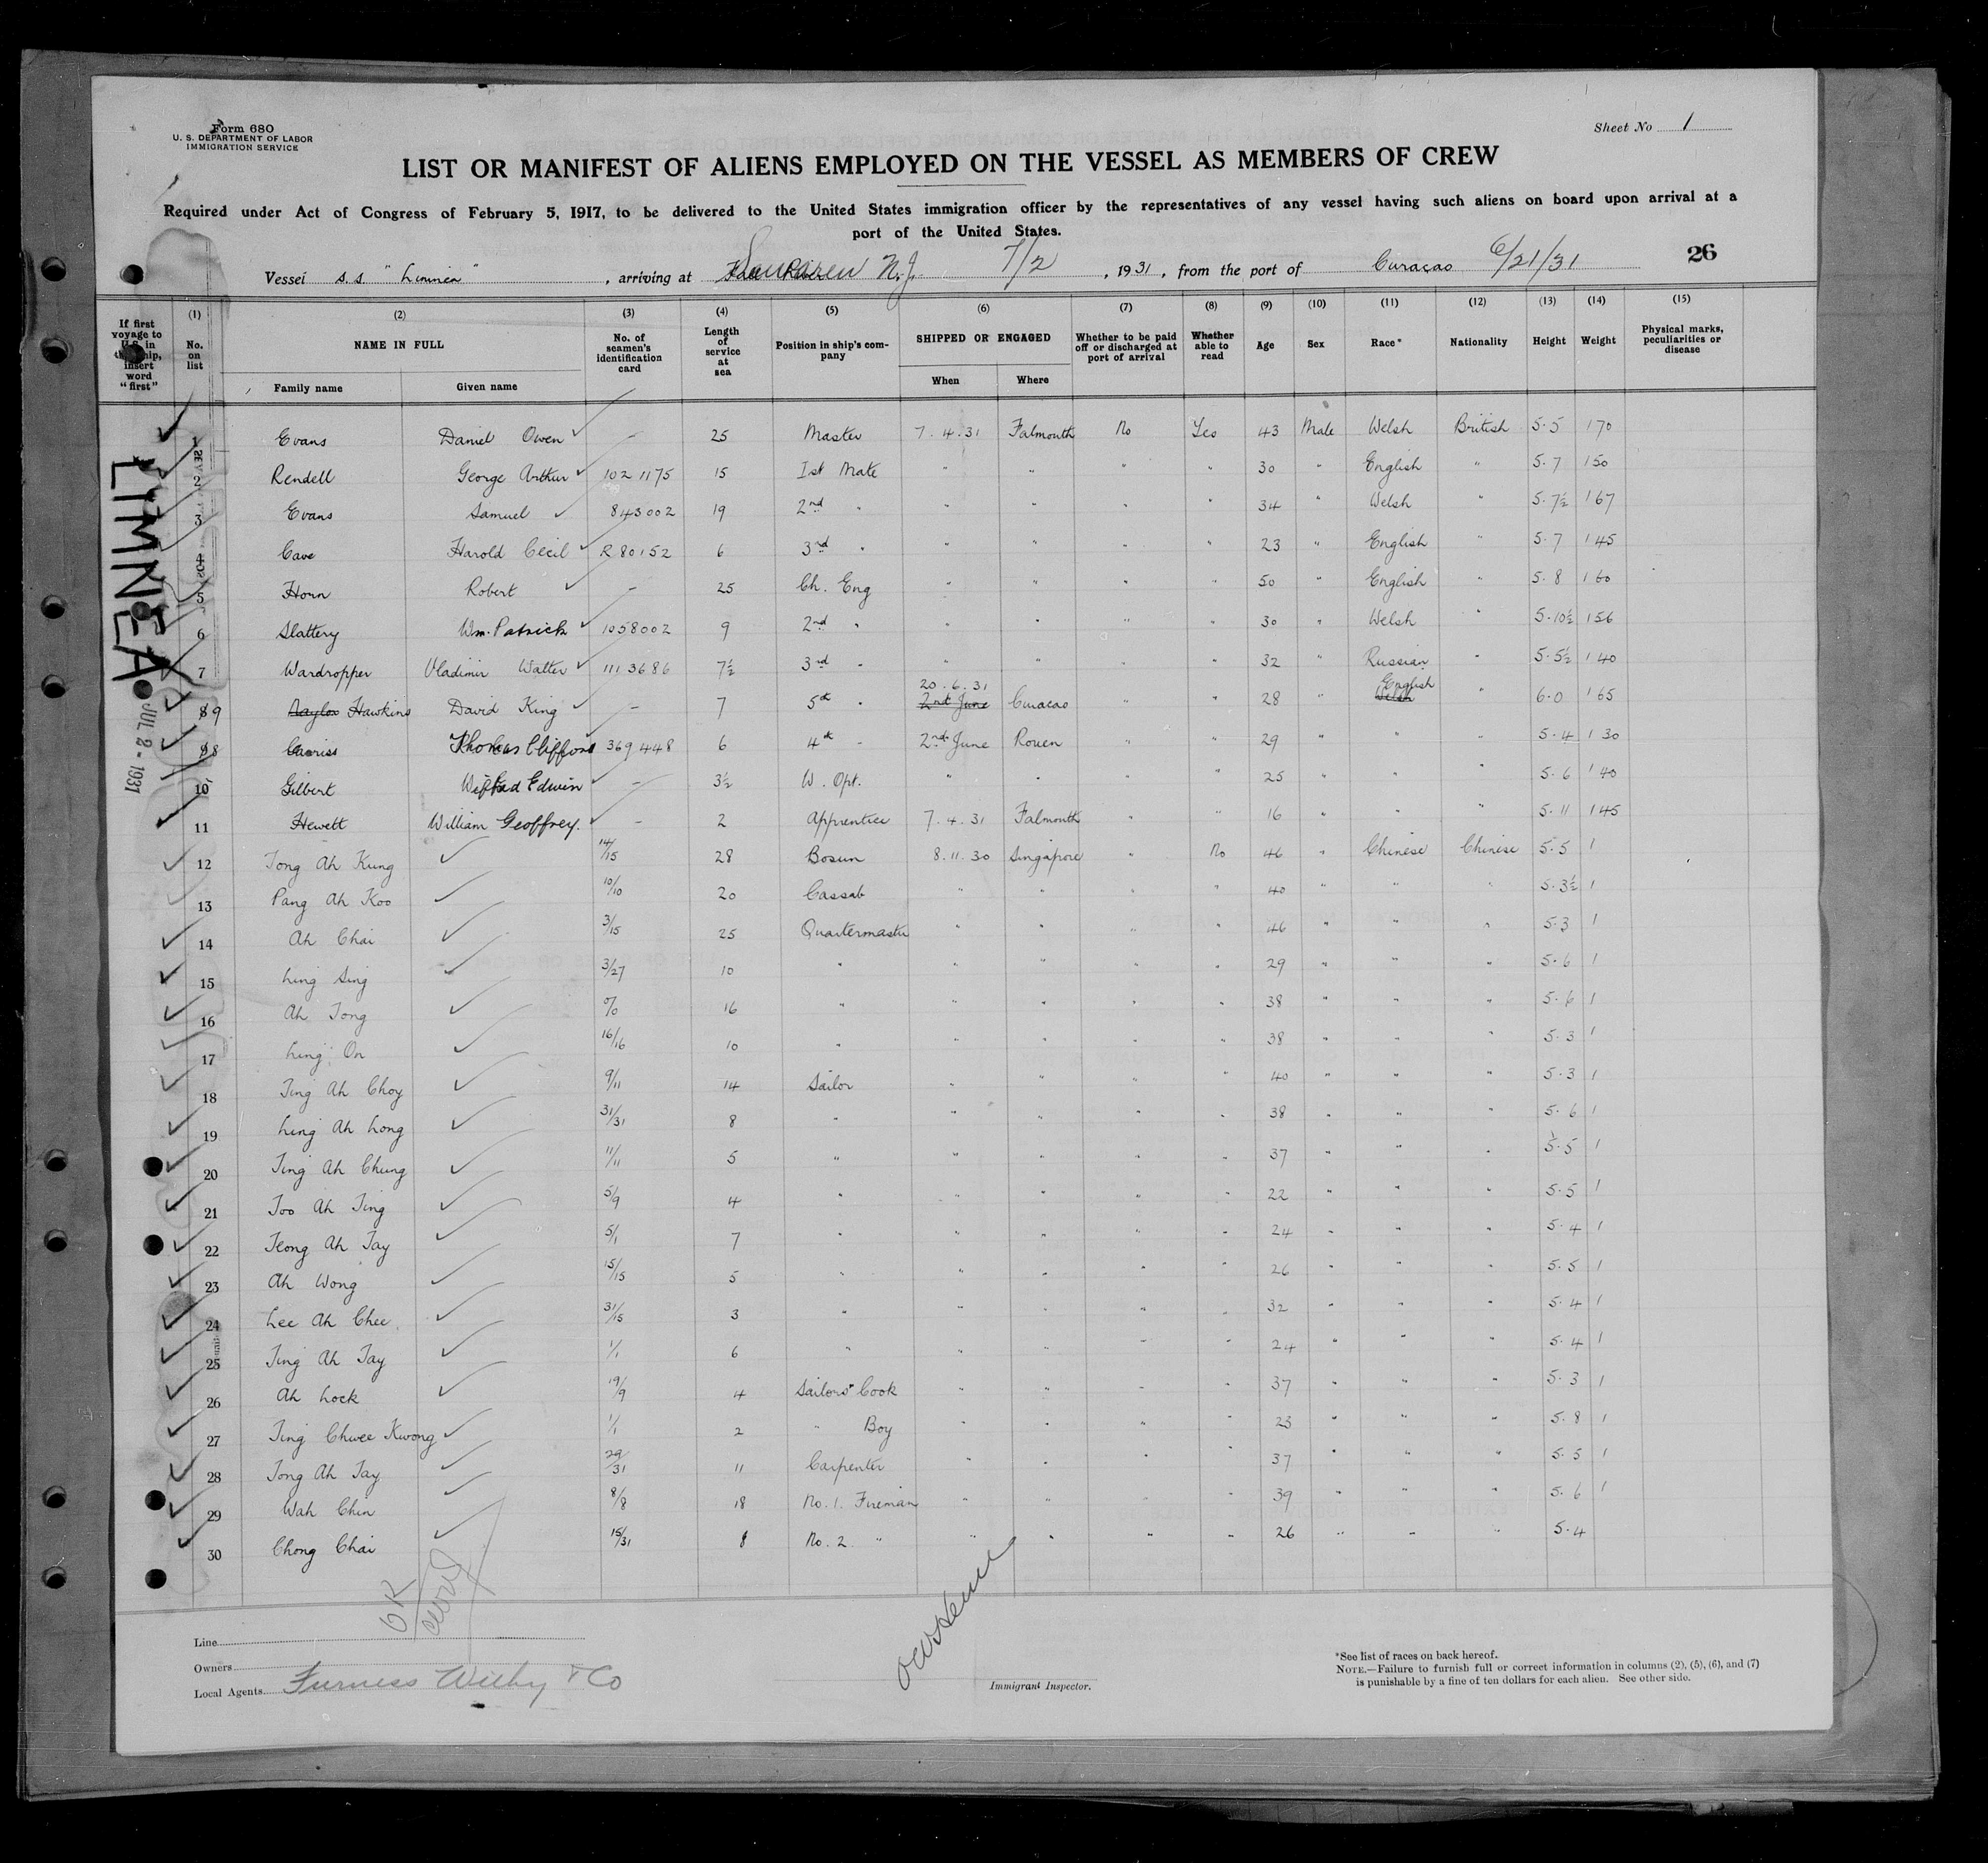 Form 680
U. S. DEPARTMENT OF LABOR
IMMIGRATION SERVICE
Sheet No 1
LIST OR MANIFEST OF ALIENS EMPLOYED ON THE VESSEL AS MEMBERS OF CREW
Required under Act of Congress of February 5, 1917, to be delivered to the United States immigration officer by the representatives of any vessel having such aliens on board upon arrival at a
port of the United States.
Vessel S.S. "Limnea", arriving at N.J. 7/2, 1931, from the port of Curaçao 6/21/31
26
If first voyage to U.S. in this ship, insert word "first"
(1) No. on list
(2) NAME IN FULL
Family name Given name
(3) No. of seamen's identification card
(4) Length of service at sea
(5) Position in ship's company
(6) SHIPPED OR ENGAGED
When Where
(7) Whether to be paid off or discharged at port of arrival
(8) Whether able to read
(9) Age
(10) Sex
(11) Race*
(12) Nationality
(13) Height
(14) Weight
(15) Physical marks, peculiarities or disease
LIMNEA
JUL 2 - 1931
1 Evans Daniel Owen - 25 Master 7.4.31 Falmouth No Yes 43 Male Welsh British 5.5 170
2 Rendell George Arthur 1021175 15 1st Mate " " " " 30 " English " 5.7 150
3 Evans Samuel 843002 19 2nd " " " " " 34 " Welsh " 5.7½ 167
4 Cave Harold Cecil R 80152 6 3rd " " " " " 23 " English " 5.7 145
5 Horn Robert - 25 Ch. Eng " " " " 50 " English " 5.8 160
6 Slattery Wm. Patrick 1058002 9 2nd " " " " " 30 " Welsh " 5.10½ 156
7 Wardropper Vladimir Walter 1113686 7½ 3rd " " " " " 32 " Russian " 5.5½ 140
9 Naylor Hawkins David King - 7 5th " 20.6.31 2nd June Curacao " " 28 " English Welsh " 6.0 165
8 Carriss Thomas Clifford 369448 6 4th " 2nd June Rouen " " 29 " " " 5.4 130
10 Gilbert Wilfred Edwin - 3½ W. Opt. " " " " 25 " " " 5.6 140
11 Hewett William Geoffrey. - 2 Apprentice 7.4.31 Falmouth " " 16 " " " 5.11 145
12 Tong Ah Kung 14/15 28 Bosun 8.11.30 Singapore " No 46 " Chinese Chinese 5.5 1
13 Pang Ah Koo 10/10 20 Cassab " " " " 40 " " " 5.3½ 1
14 Ah Chai 3/15 25 Quartermaster " " " " 46 " " " 5.3 1
15 Ling Sing 3/27 10 " " " " " 29 " " " 5.6 1
16 Ah Tong 0/0 16 " " " " " 38 " " " 5.6 1
17 Ling On 16/16 10 " " " " " 38 " " " 5.3 1
18 Ting Ah Choy 9/11 14 Sailor " " " " 40 " " " 5.3 1
19 Ling Ah Long 31/31 8 " " " " " 38 " " " 5.6 1
20 Ting Ah Chung 11/11 5 " " " " " 37 " " " 5.5 1
21 Too Ah Ting 5/9 4 " " " " " 22 " " " 5.5 1
22 Teong Ah Tay 5/1 7 " " " " " 24 " " " 5.4 1
23 Ah Wong 15/15 5 " " " " " 26 " " " 5.5 1
24 Lee Ah Chee 31/15 3 " " " " " 32 " " " 5.4 1
25 Ting Ah Tay 1/1 6 " " " " " 24 " " " 5.4 1
26 Ah Lock 19/9 4 Sailors' Cook " " " " 37 " " " 5.3 1
27 Ting Chwee Kwong 1/1 2 " Boy " " " " 23 " " " 5.8 1
28 Tong Ah Tay 29/31 11 Carpenter " " " " 37 " " " 5.5 1
29 Wah Chin 8/8 18 No. 1. Fireman " " " " 39 " " " 5.6 1
30 Chong Chai 15/31 8 No. 2. " " " " " 26 " " " 5.4
OK
Line
Owners
Local Agents Furness Withy & Co
Immigrant Inspector.
*See list of races on back hereof.
NOTE.—Failure to furnish full or correct information in columns (2), (5), (6), and (7)
is punishable by a fine of ten dollars for each alien. See other side.